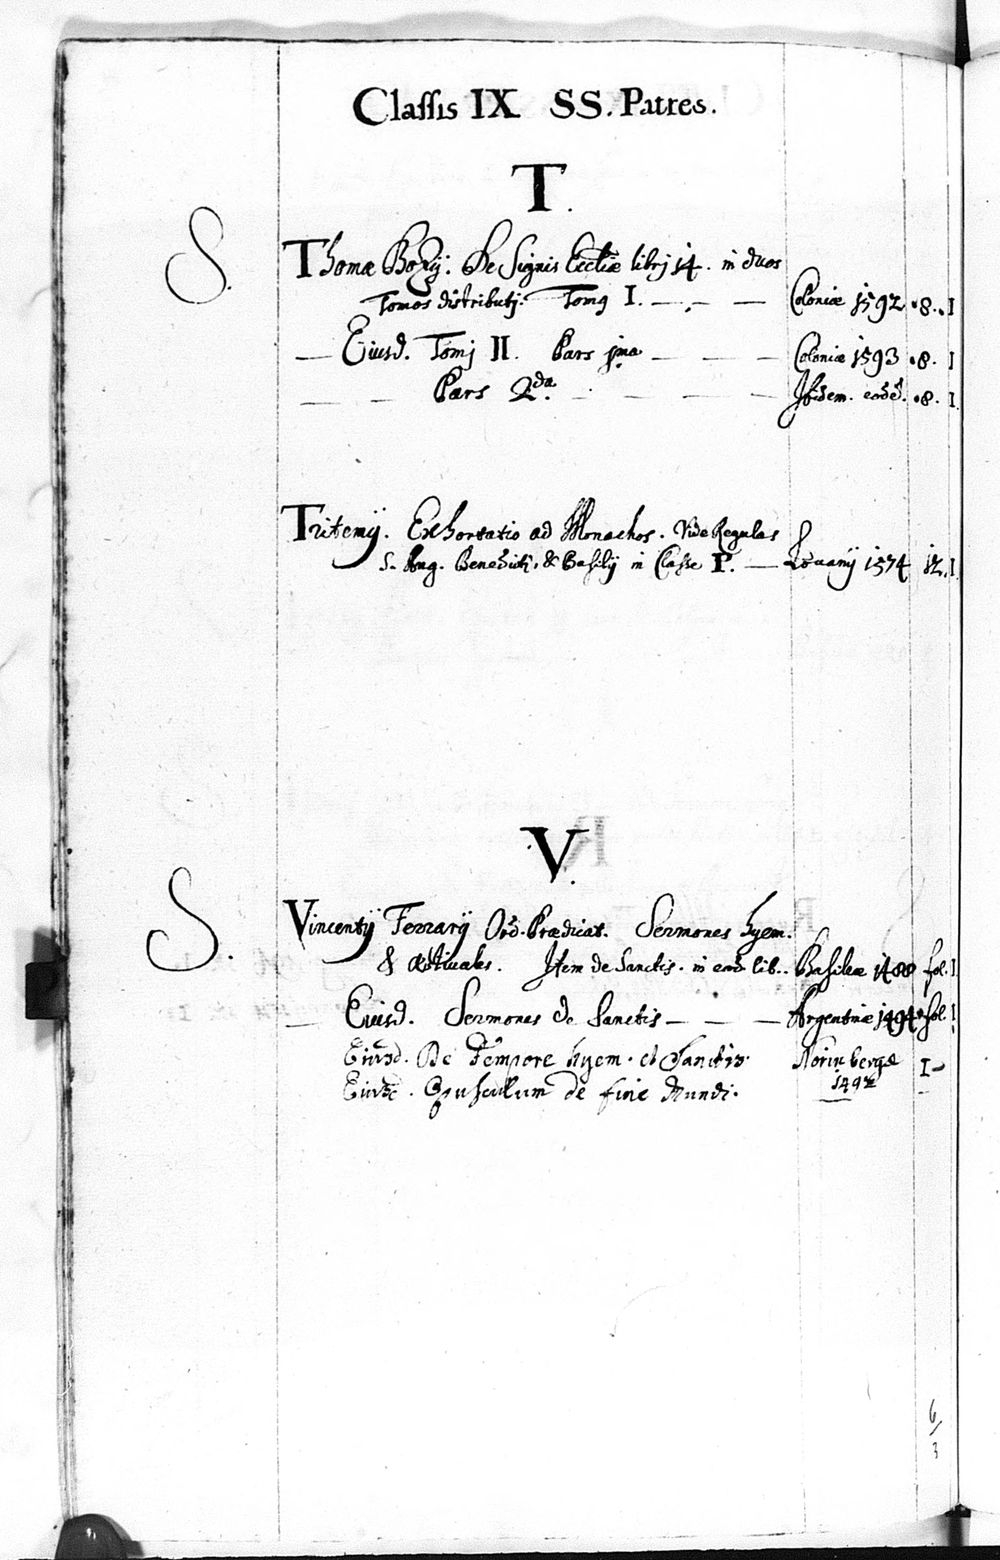 Classis IX SS. Patres.
T.
S. Thomæ Bozij. De Signis Eccliæ libri 14. in duos
Tomos distributj. Tomq I. — . — — Coloniæ 1592 .8. I
— Eiusd. Tomj II. Pars jma — — — Coloniæ 1593 .8. I
— — Pars 2.da — — — — Ibidem. eodē. .8. I.
Tritemij. Exhortatio ad Monachos. Vide Regulas
S. Aug. Benedicti, & Basilij in Classe P. — Lovanij 1574 12. I.
V.
S. Vincentij Ferrarij Ord. Prædicat. Sermones hyem.
& æstivales. Item de Sanctis. in eod. lib. Basileæ 1488 fol. I.
— Eiusd. Sermones de Sanctis — — — Argentinæ 1494 fol. I
Eiusd. De Tempore hyem. et Sanctis. Norinbergæ I
Eiusd. Opusculum de fine Mundi. 1492
6/3